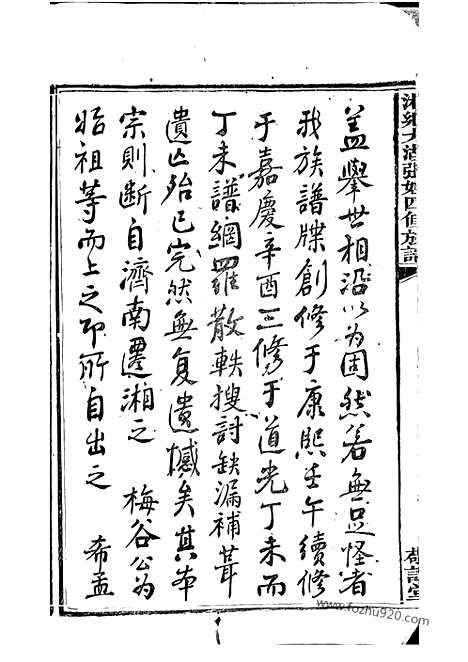 蓋舉世相沿以為固然若無足怪者
我族譜牒創修于康熙壬午續修
于嘉慶辛酉三修于道光丁未而
丁未譜網羅散軼搜討缺漏補葺
遺亡殆已完然無复遺憾矣其本
宗則断自濟南遷湘之 梅谷公為
始祖等而上之即所自出之 希孟
www.fozhu920.com